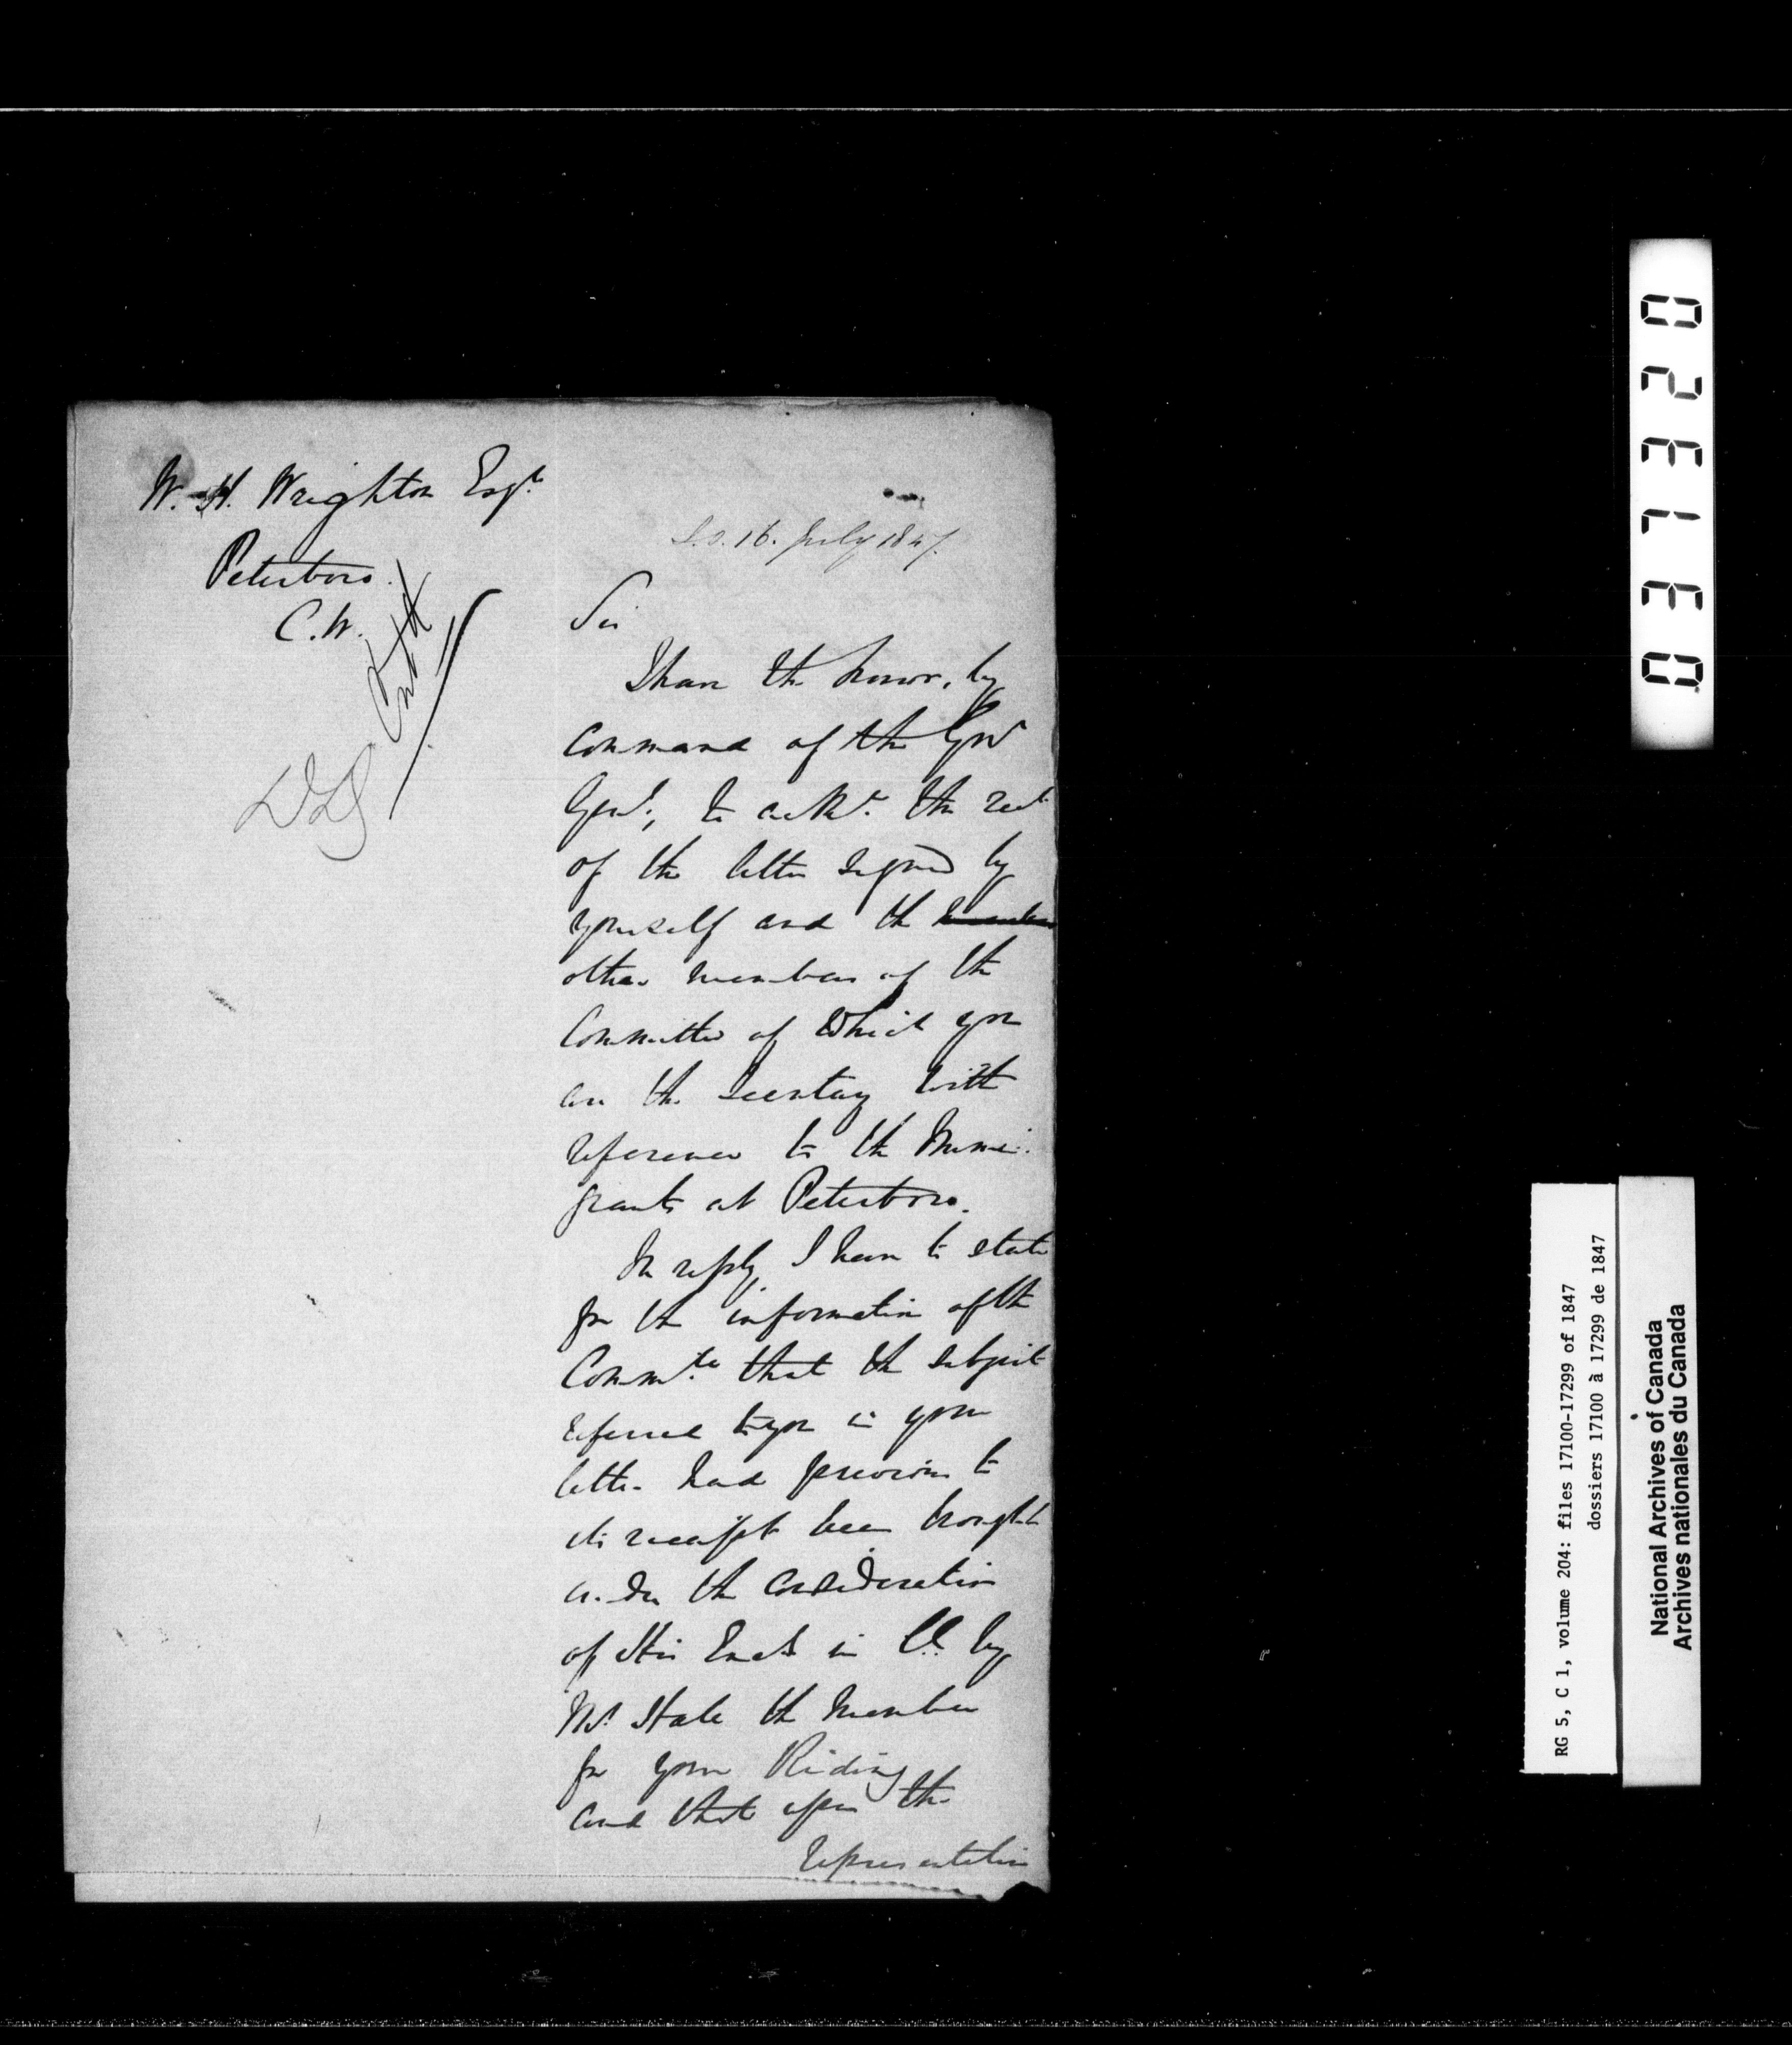 W. H. Wrighton Esqr.
Peterboro.
C.W.
Entd
S.O. 16. July 1847.
Sir
I have the honor, by
command of the Govr
Genl, to ackn. the rect
of the letter signed by
yourself and the members
other members of the
Committee of which you
are the Secretary with
reference to the Immi-
grants at Peterboro.
In reply, I have to state
for the information of the
Commtee that the subject
referred to in your
letter had previous to
its receipt been brought
under the consideration
of His Excy in C. by
Mr. Hale the member
for your Riding
and that upon the
representation
037320
RG 5, C 1, volume 204: files 17100-17299 of 1847
dossiers 17100 à 17299 de 1847
National Archives of Canada
Archives nationales du Canada